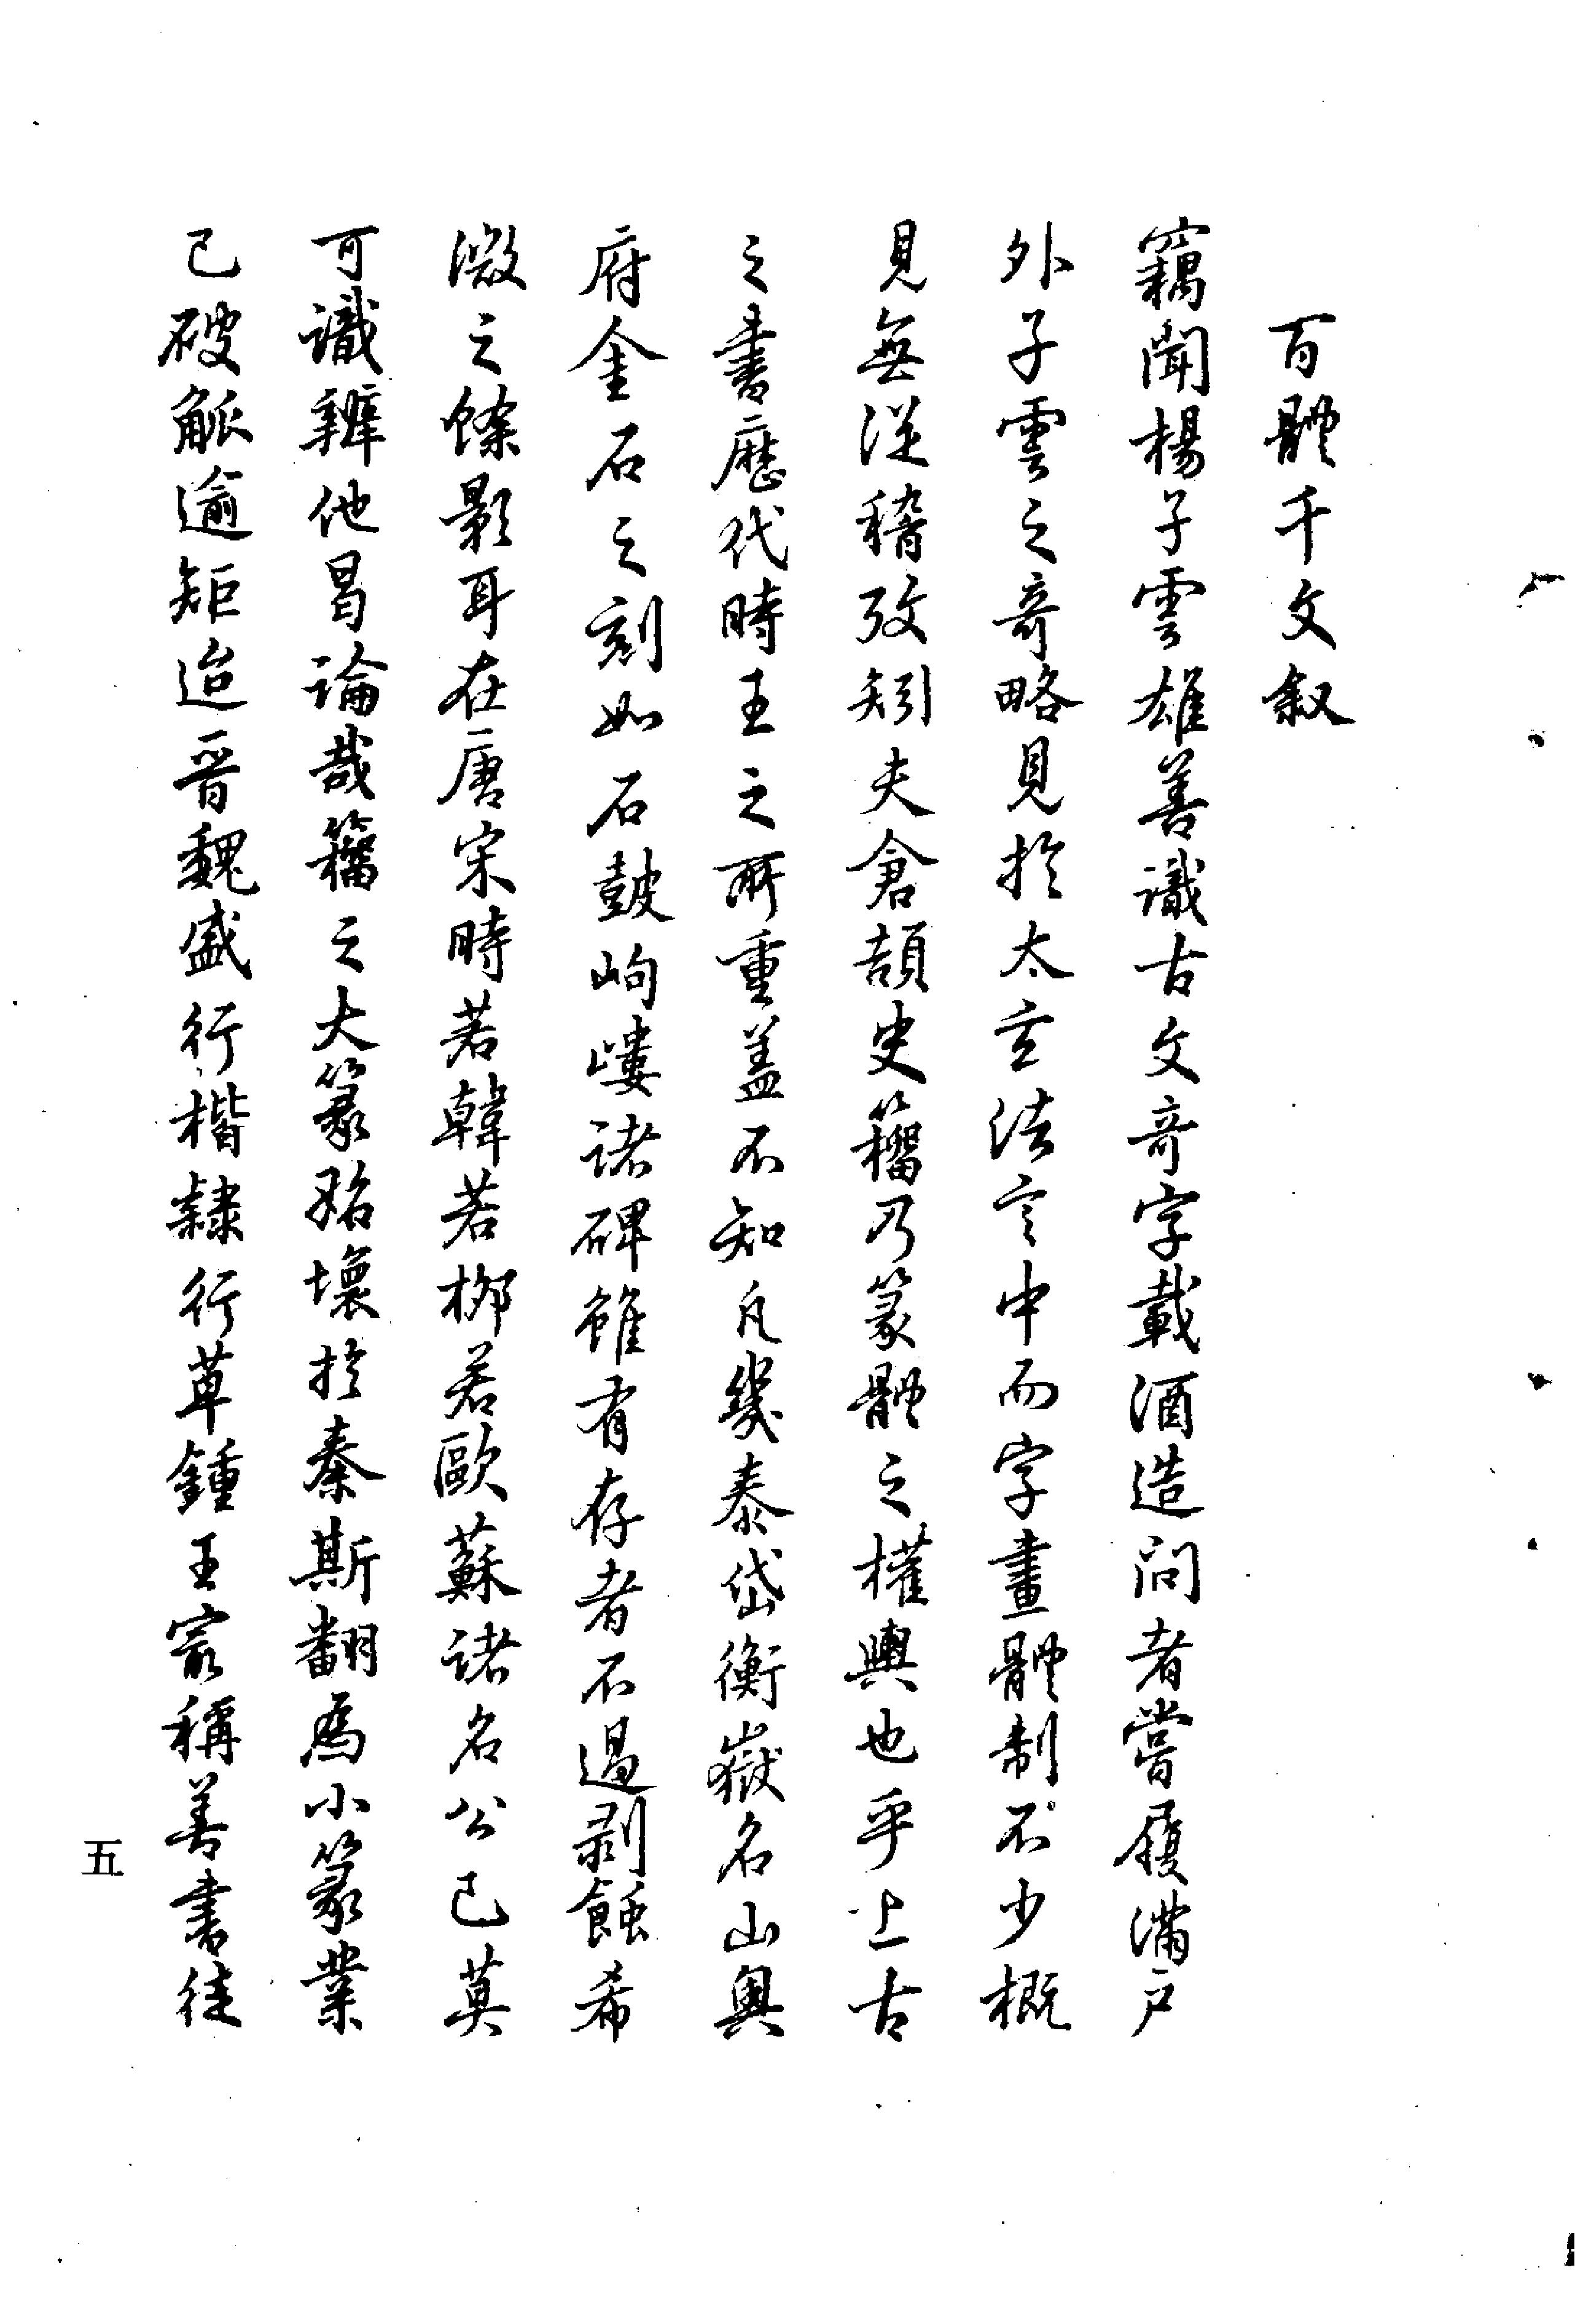 百體千文叙
竊聞楊子雲雄善識古文奇字載酒造问者嘗履滿戶
外子雲之奇略見於太玄法言中而字畫體制不少概
見無從稽攷矧夫倉頡史籀乃篆體之權輿也乎上古
之書歷代時王之所重蓋不知凡幾泰岱衡嶽名山奥
府金石之刻如石鼓岣嶁諸碑雖有存者不過剥蝕希
微之餘影耳在唐宋時若韓若柳若歐蘇諸名公已莫
可識辨他曷論哉籀之大篆殆壞於秦斯翻為小篆業
已破觚逾矩迨晉魏盛行楷隸行草鍾王最稱善書徒
五